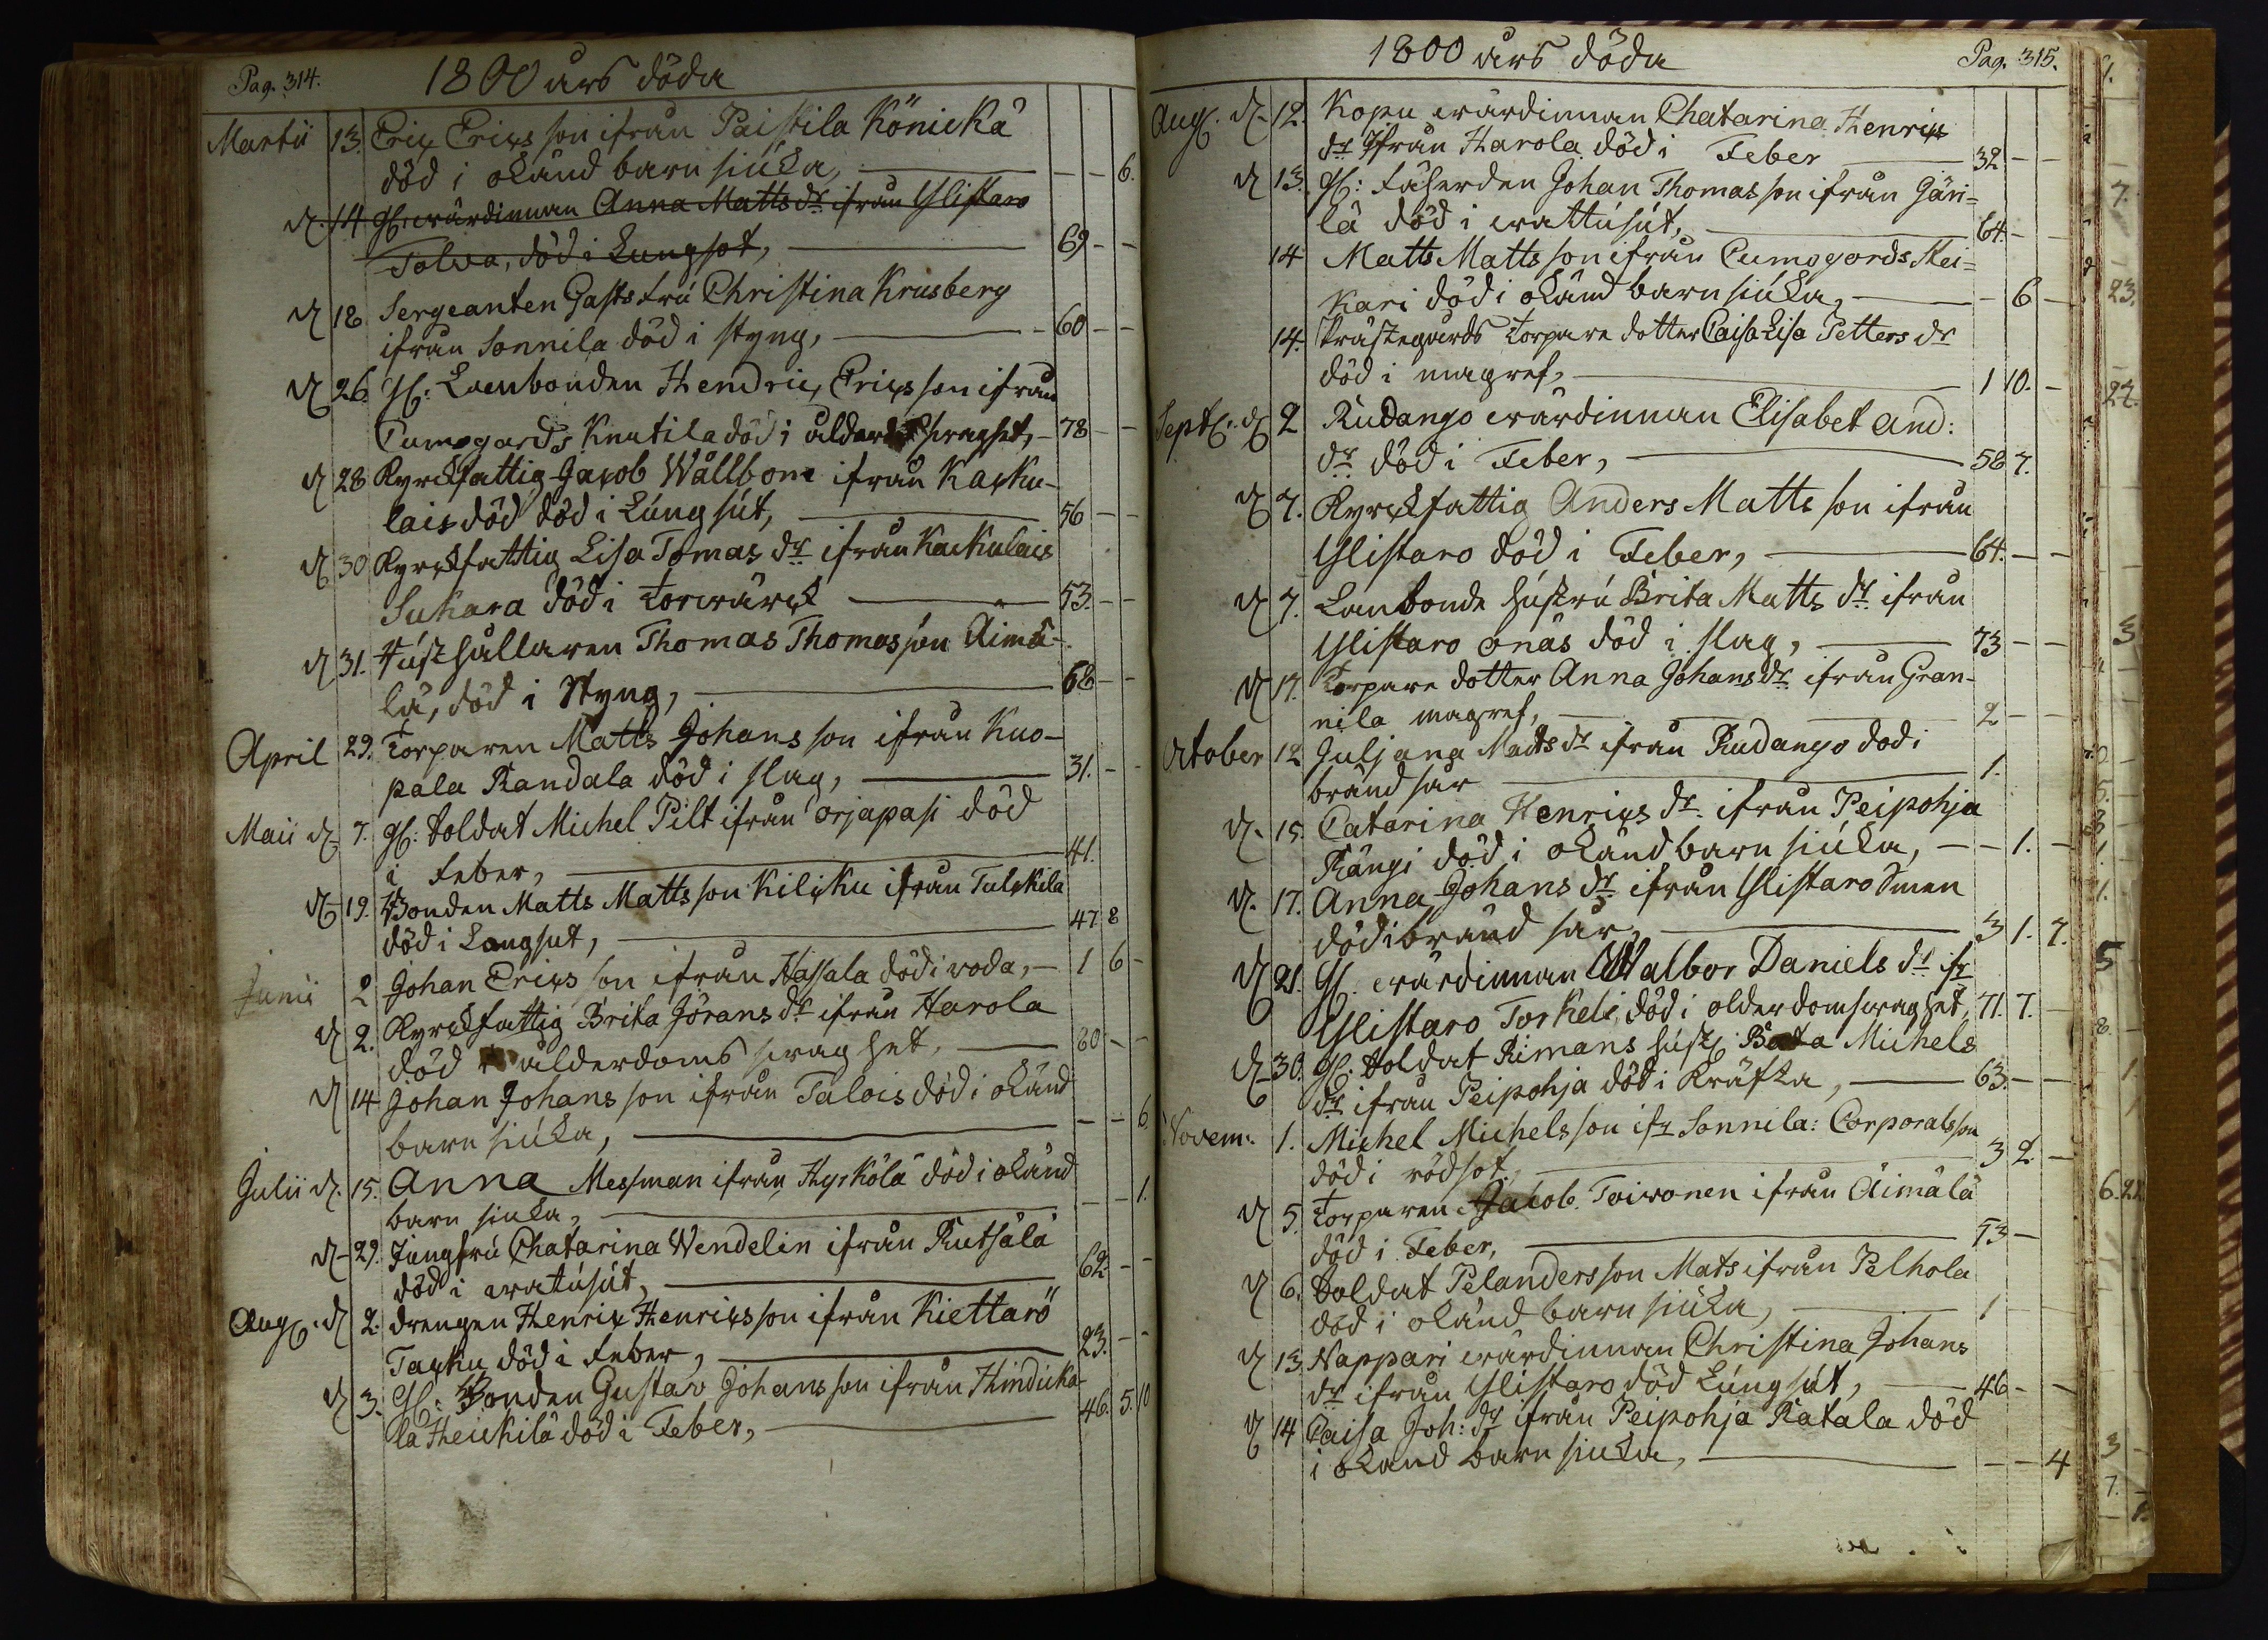 Pag. 314. 1800 års döda
Martii 13. Erix Erixs son ifrån Paistila Könickä
död i okänd barn siúka, — — 6.
d. 14 gl: wärdinnan Anna Matts dr ifrån Ylistaro
Tolva, död i Lungsot, 69 — —
d 18 Sergeanten Gasts frú Christina Krusberg
ifrån Sonnila död i styng, 60 — —
d 26. gl: Lænbonden Hendric Erixs son ifrån
Cumogards Knutila död i ålderdoms swaghet, 78 — —
d 28 Kyrckfattig Jacob Wållbom ifrån Kacku-
lais död död i Lúngsút, 56 — —
d 30 Kyrckfattig Lisa Tomas dr ifrån Kackulais
Suhara död i torrwärck 53. — —
d 31. Húshållaren Thomas Thomas son Äimä-
lä, död i Styng, 68 — —
April 29. Torparen Matts Johans son ifrån Kuo-
pala Randala död i slag, 31. — —
Maii d 7. gl: Soldat Michel Pilt ifrån orjapasi död
i Feber, 41.
d 19. Bonden Matts Matts son Kilcku ifrån Tulckila
död i Langsut, 47 8
Junii 2 Johan Erixs son ifrån Hassala död i roda, — 1 6 —
d 2. Kyrckfattig Brita Jörans dr ifrån Harola
död i ålderdoms swaghet, 80 — —
d 14 Johan Johans son ifrån Talois död i okänd
barn siúka, — — 6.
Julii d. 15. Anna Messman ifrån Hyrkölä död i okänd
barn siuka, — — 1.
d — 29. Jungfrú Chatarina Wendelin ifrån Rutsälä
död i watúsút, 62 — —
Aug. d 2. drengen Henrix Henrixs son ifrån Kiettarö
Tacku död i Feber, 23. — —
d 3. gl: Bonden Gustav Johans son ifrån Hindicka-
la Heickilä död i Feber, 46. 5. 10
1800 års döda Pag. 315.
Aug. d. 12. Kopu wärdinnan Chatarina Henrix
dr Ifrån Harola död i Feber 32 — —
d 13. gl: Fäherden Johan Thomas son ifrån Gäri=
lä död i wattúsút, 64. — —
14 Matts Matts son ifrån Cumogords Mei=
kari död i okänd barn siúka, — 6 —
14. Prästegårds torpare dotter Caisa Lisa Petters dr
död i magref, 1 10. —
Sept. d 2 Rúdango wärdinnan Elisabet And:
dr död i Feber, 58 7.
d 7. Kyrckfattig Anders Matts son ifrån
Ylistaro död i Feber, 64. — —
d 7. Lænbonde hústrú Brita Matts dr ifrån
Ylistaro onäs död i slag, 73 — —
d 17. Torpare dotter Anna Johans dr ifrån Gran-
nila magref, 2 — —
October 12 Juljana Matts dr ifrån Rudango dod i
bränd sår 1.
d. 15. Catarina Henrixs dr ifrån Peipohja
Rängi död i okänd barn siúka, — — 1. —
d. 17. Anna Johans dr ifrån Ylistaro Smen
död i bränd sår, 3 1. 7.
d 21. gl. wärdinnan Walbor Daniels dr ifr
Ylistaro Torkeli, död i olderdomswaghet, 71. 7. —
d 30. gl. Soldat Rimans hústr. Beata Michels
dr ifrån Peipohja död i kräfta, 63. — —
Novem: 1. Michel Michels son ifr Sonnila: Corporals son
död i rödsot, 3 2. —
d 5. Torparen Jacob Toivonen ifrån Äimälä
död i Feber, 53 —
d 6. Soldat Pelanders son Mats ifrån Pelhola
död i okänd barn siúka, 1 — —
d 13. Nappari wärdinnan Christina Johans
dr ifrån Ylistaro död Lúngsút, 46 — —
d 14 Caisa Joh: dr ifrån Peipohja Ratala död
i okand barn siuka, — — 4